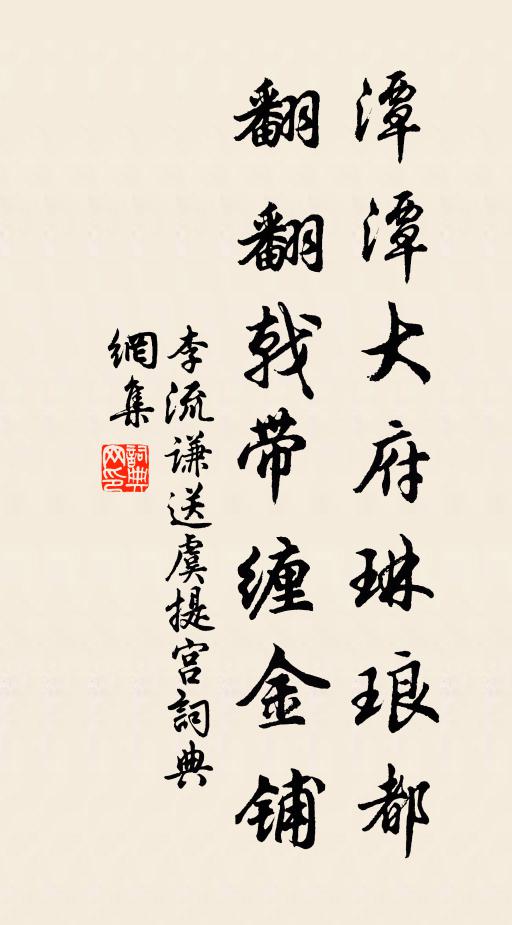 潭潭大府琳琅都
翻翻戟带缠金铺
李流谦送虞提宫詞典
網集
詞典网印